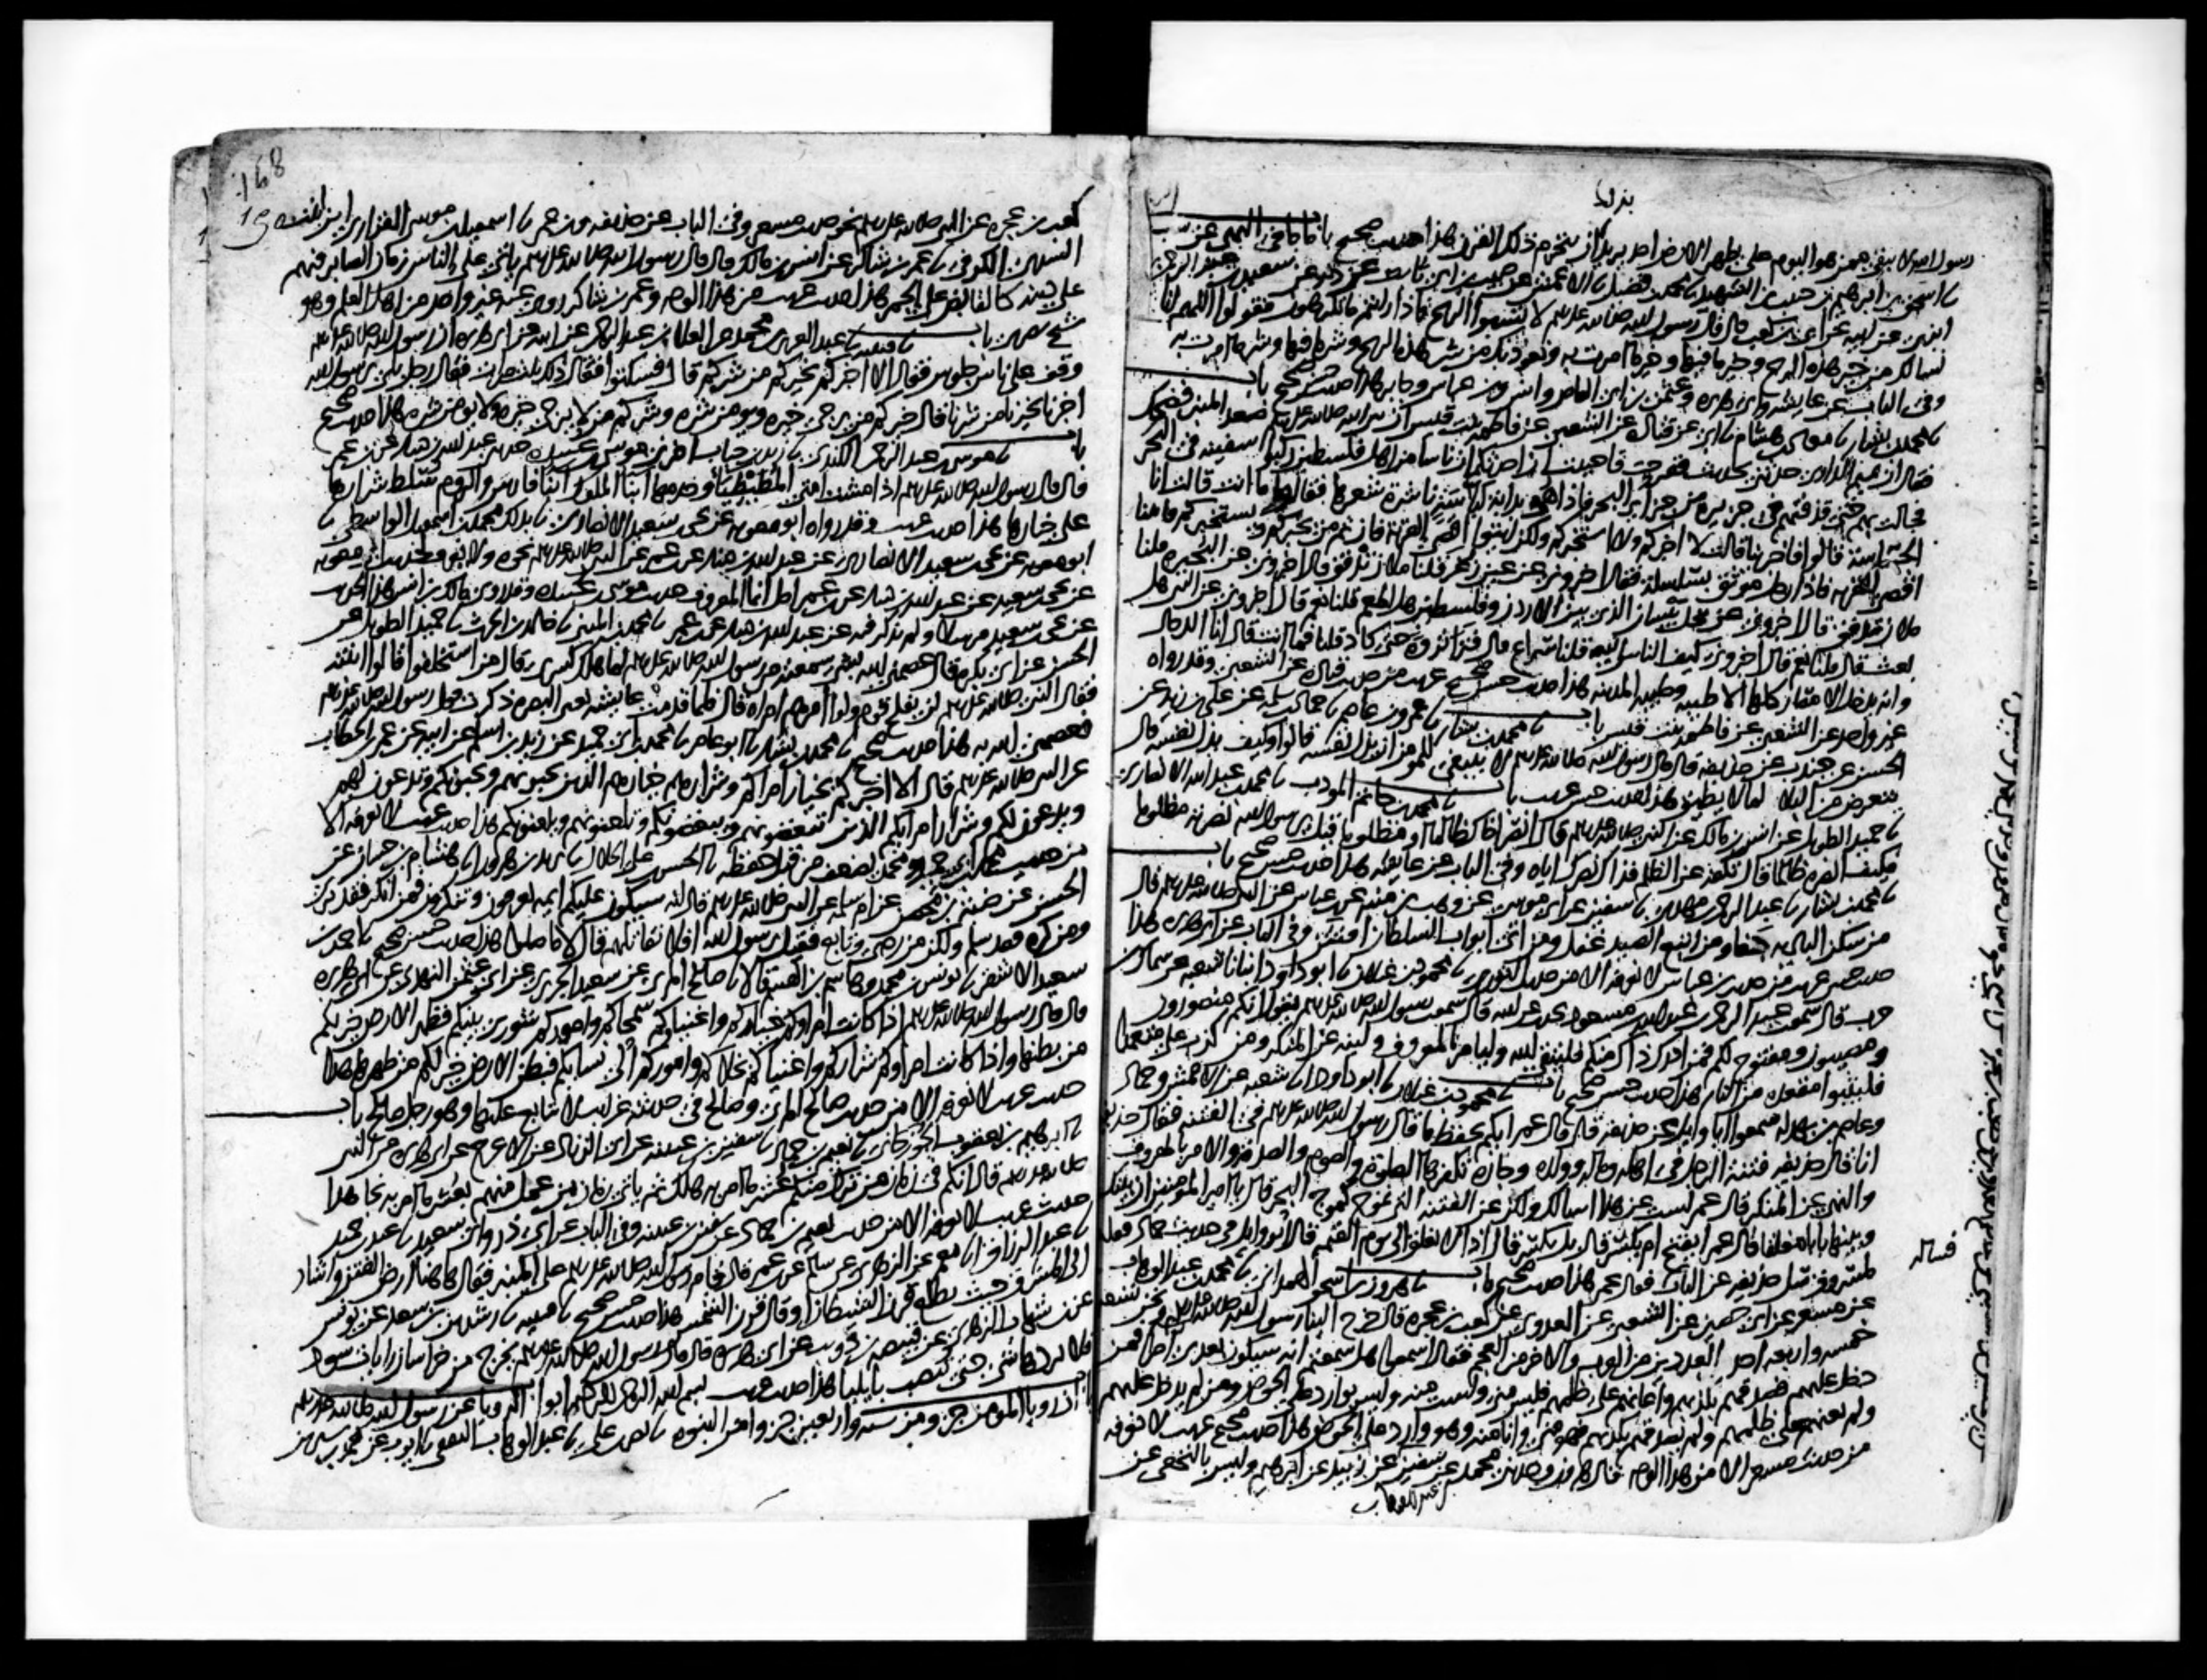 بزيد
رسول الله صلى لا يبقى ممن هو اليوم على ظهر الارض احد يريد بذلك ان ينخرم ذلك القرن هذا حديث صحيح باب ما جا في النهي عن سب
نا اسحق بن ابراهيم بن حبيب بن الشهيد نا محمد بن فضيل نا الاعمش عن حبيب بن ابي ثابت عن ذر عن سعيد بن عبد الرحمن
ابزى عن ابيه عن ابي بن كعب قال قال رسول الله صلى الله عليه وسلم لا تسبوا الريح فاذا رايتم ما تكرهون فقولوا اللهم انا
نسالك من خير هذه الريح وخير ما فيها وخير ما امرت به ونعوذ بك من شر هذه الريح وشر ما فيها وشر ما امرت به
وفي الباب عن عايشة وابي هريرة وعثمن بن ابي العاص وانس وبن عباس وجابر هذا حديث صحيح باب
نا محمد بن بشار نا معاذ بن هشام نا ابي عن قتادة عن الشعبي عن فاطمة بنت قيس ان نبي الله صلى الله عليه وسلم صعد المنبر فضحك
فقال ان تميم الداري حدثني بحديث ففرحت فاحببت ان احدثكم ان ناسا من اهل فلسطين ركبوا سفينة في البحر
فجالت بهم حتى قذفتهم في جزيرة من جزاير البحر فاذا هم بدابة لباسة ناشرة شعرها فقالوا ما انت قالت انا
الجساسة قالوا فاخبرينا قالت لا اخبركم ولا استخبركم ولكن ايتوا اقصى القرية فان ثم من يخبركم ويستخبركم فاتينا
اقصى القرية فاذا رجل موثق بسلسلة فقال اخبروني عن عين زغر قلنا ملاى تدفق قال اخبروني عن البحيرة قلنا
ملاى تدفق قال اخبروني عن نخل بيسان الذي بين الاردن وفلسطين هل اطعم قلنا نعم قال اخبروني عن النبي هل
بعث قلنا نعم قال اخبروني كيف الناس اليه قلنا سراع قال فنزا نزوة حتى كاد قلنا فما انت قال انا الدجال
وانه يدخل الامصار كلها الا طيبة وطيبة المدينة هذا حديث حسن صحيح غريب من حديث قتادة عن الشعبي وقد رواه
غير واحد عن الشعبي عن فاطمة بنت قيس باب نا محمد بن بشار نا عمرو بن عاصم نا حماد بن سلمة عن علي بن زيد عن
الحسن عن جندب عن حذيفة قال قال رسول الله صلى الله عليه وسلم لا ينبغي للمومن ان يذل نفسه قالوا وكيف يذل نفسه قال
يتعرض من البلا لما لا يطيق هذا حديث حسن غريب باب نا محمد بن حاتم المودب نا محمد بن عبد الله الانصاري
نا حميد الطويل عن انس بن مالك عن النبي صلى الله عليه وسلم قال انصر اخاك ظالما او مظلوما قيل يرسول الله نصرته مظلوما
فكيف انصره ظالما قال تكفه عن الظلم فذاك نصرك اياه وفي الباب عن عايشة هذا حديث حسن صحيح باب
نا محمد بن بشار نا عبد الرحمن بن مهدي نا سفين عن ابي موسى عن وهب بن منبه عن بن عباس عن النبي صلى الله عليه وسلم قال
من سكن البادية جفا ومن اتبع الصيد غفل ومن اتى ابواب السلطان افتتن وفي الباب عن ابي هريرة هذا
حديث حسن غريب من حديث بن عباس لا نعرفه الا من حديث الثوري نا محمود بن غيلان نا ابو داود انبانا شعبة عن سماك بن
حرب قال سمعت عبد الرحمن بن عبد الله بن مسعود يحدث عن ابيه قال سمعت رسول الله صلى الله عليه وسلم يقول انكم منصورون
ومصيبون ومفتوح لكم فمن ادرك ذاك منكم فليتق الله وليامر بالمعروف ولينه عن المنكر ومن كذب علي متعمدا
فليتبوا مقعده من النار هذا حديث حسن صحيح باب نا محمود بن غيلان نا ابو داود انا شعبة عن الاعمش وحماد
وعاصم بن بهدلة سمعوا ابا وايل عن حذيفة قال قال عمر ايكم يحفظ ما قال رسول الله صلى الله عليه وسلم في الفتنة فقال حذيفة
انا قال حذيفة فتنة الرجل في اهله وماله وولده وجاره تكفرها الصلوة والصوم والصدقة والامر بالمعروف
والنهي عن المنكر قال عمر لست عن هذا اسالك ولكن عن الفتنة التي تموج كموج البحر قال يا امير المومنين ان بينك
وبينها بابا مغلقا قال عمر ايفتح ام يكسر قال بل يكسر قال اذا لا يغلق الى يوم القيمة قال ابو وايل في حديث حماد فقلت
لمسروق سل حذيفة عن الباب فقال عمر هذا حديث صحيح باب نا هرون بن اسحق الهمداني نا محمد بن عبد الوهاب
عن مسعر عن ابي حصين عن الشعبي عن العدوي عن كعب بن عجرة قال خرج الينا رسول الله صلى الله عليه وسلم ونحن تسعة
خمسة واربعة احد العددين من العرب والاخر من العجم فقال اسمعوا هل سمعتم انه سيكون بعدي امرا فمن
دخل عليهم فصدقهم بكذبهم واعانهم على ظلمهم فليس مني ولست منه وليس بوارد علي الحوض ومن لم يدخل عليهم
ولم يعنهم على ظلمهم ولم يصدقهم بكذبهم فهو مني وانا منه وهو وارد علي الحوض هذا حديث صحيح غريب لا نعرفه
من حديث مسعر الا من هذا الوجه قال هرون وحدثني محمد عن سفين عن زبيد عن ابرهيم وليس بالنخعي عن
عبد الوهاب
فساله
168
كعب بن عجرة عن النبي صلى الله عليه وسلم نحو حديث مسعر وفي الباب عن حذيفة وبن عمر نا اسمعيل بن موسى الفزاري ابن ابنة
السدي الكوفي نا عمر بن شاكر عن انس بن مالك قال قال رسول الله صلى الله عليه وسلم ياتي على الناس زمان الصابر فيهم
على دينه كالقابض على الجمر هذا حديث غريب من هذا الوجه وعمر بن شاكر روى عنه غير واحد من اهل العلم وهو
شيخ بصري باب نا قتيبة نا عبد العزيز بن محمد عن العلاء بن عبد الرحمن عن ابيه عن ابي هريرة ان رسول الله صلى الله عليه وسلم
وقف على ناس جلوس فقال الا اخبركم بخيركم من شركم قال فسكتوا فقال ذلك ثلث مرات فقال رجل بلى يرسول الله
اخبرنا بخيرنا من شرنا قال خيركم من يرجى خيره ويومن شره وشركم من لا يرجى خيره ولا يومن شره هذا حديث صحيح
باب نا موسى بن عبد الرحمن الكندي نا زيد بن حباب اخبرني موسى بن عبيدة حدثني عبد الله بن دينار عن بن عمر
قال قال رسول الله صلى الله عليه وسلم اذا مشت امتي المطيطيا وخدمها ابنا الملوك ابنا فارس والروم سلط شرارها
على خيارها هذا حديث غريب وقد رواه ابو معوية عن يحيى بن سعيد الانصاري نا بذلك محمد بن اسمعيل الواسطي نا
ابو معوية عن يحيى بن سعيد الانصاري عن عبد الله بن دينار عن بن عمر عن النبي صلى الله عليه وسلم نحوه ولا يعرف لحديث ابي معوية
عن يحيى بن سعيد عن عبد الله بن دينار عن بن عمر اصل انما المعروف حديث موسى بن عبيدة وقد روى مالك بن انس هذا الحديث
عن يحيى بن سعيد مرسلا ولم يذكر فيه عن عبد الله بن دينار عن بن عمر نا محمد بن المثنى نا خالد بن الحرث نا حميد الطويل عن
الحسن عن ابي بكرة قال عصمني الله بشي سمعته من رسول الله صلى الله عليه وسلم لما هلك كسرى قال من استخلفوا قالوا ابنته
فقال النبي صلى الله عليه وسلم لن يفلح قوم ولوا امرهم امراة قال فلما قدمت عايشة يعني البصرة ذكرت قول رسول الله صلى الله عليه وسلم
فعصمني الله به هذا حديث صحيح نا محمد بن بشار نا ابو عامر نا محمد بن ابي حميد عن زيد بن اسلم عن ابيه عن عمر بن الخطاب
عن النبي صلى الله عليه وسلم قال الا اخبركم بخيار امرائكم وشرارهم خيارهم الذين تحبونهم ويحبونكم وتدعون لهم
ويدعون لكم وشرار امرايكم الذين تبغضونهم ويبغضونكم وتلعنونهم ويلعنونكم هذا حديث غريب لا نعرفه الا
من حديث محمد بن ابي حميد ومحمد يضعف من قبل حفظه نا الحسن بن علي الخلال نا يزيد بن هرون انا هشام بن حسان عن
الحسن عن ضبة بن محصن عن ام سلمة عن النبي صلى الله عليه وسلم قال انه سيكون عليكم ايمة تعرفون وتنكرون فمن انكر فقد بري
ومن كره فقد سلم ولكن من رضي وتابع فقيل يرسول الله افلا نقاتلهم قال لا ما صلوا هذا حديث حسن صحيح نا احمد بن
سعيد الاشقر نا يونس بن محمد وهاشم بن القسم قالا نا صالح المري عن سعيد الجريري عن ابي عثمن النهدي عن ابي هريرة
قال قال رسول الله صلى الله عليه وسلم اذا كانت امراوكم خياركم واغنياوكم سمحاكم واموركم شورى بينكم فظهر الارض خير لكم
من بطنها واذا كانت امراوكم شراركم واغنياكم بخلاكم واموركم الى نسايكم فبطن الارض خير لكم من ظهرها هذا
حديث غريب لا نعرفه الا من حديث صالح المري وصالح في حديثه غرايب لا يتابع عليها وهو رجل صالح باب
نا ابرهيم بن يعقوب الجوزجاني نا نعيم بن حماد نا سفين بن عيينة عن ابي الزناد عن الاعرج عن ابي هريرة عن النبي
صلى الله عليه وسلم قال انكم في زمان من ترك منكم عشر ما امر به هلك ثم ياتي زمان من عمل منهم بعشر ما امر به نجا هذا
حديث غريب لا نعرفه الا من حديث نعيم بن حماد عن سفين بن عيينة وفي الباب عن ابي ذر وابي سعيد نا عبد بن حميد
نا عبد الرزاق انا معمر عن الزهري عن سالم عن بن عمر قال قام رسول الله صلى الله عليه وسلم على المنبر فقال هاهنا ارض الفتن واشار
الى المشرق حيث يطلع قرن الشيطان او قال قرن الشمس هذا حديث حسن صحيح نا قتيبة نا رشدين بن سعد عن يونس
عن بن شهاب الزهري عن قبيصة بن ذويب عن ابي هريرة قال قال رسول الله صلى الله عليه وسلم يخرج من خراسان رايات سود
فلا يردها شي حتى تنصب بايليا هذا حديث غريب بسم الله الرحمن الرحيم ابواب الرويا عن رسول الله صلى الله عليه وسلم
باب ان رويا المومن جز من ستة واربعين جز وامر النبوة نا نصر بن علي نا عبد الوهاب الثقفي نا ايوب عن محمد بن سيرين